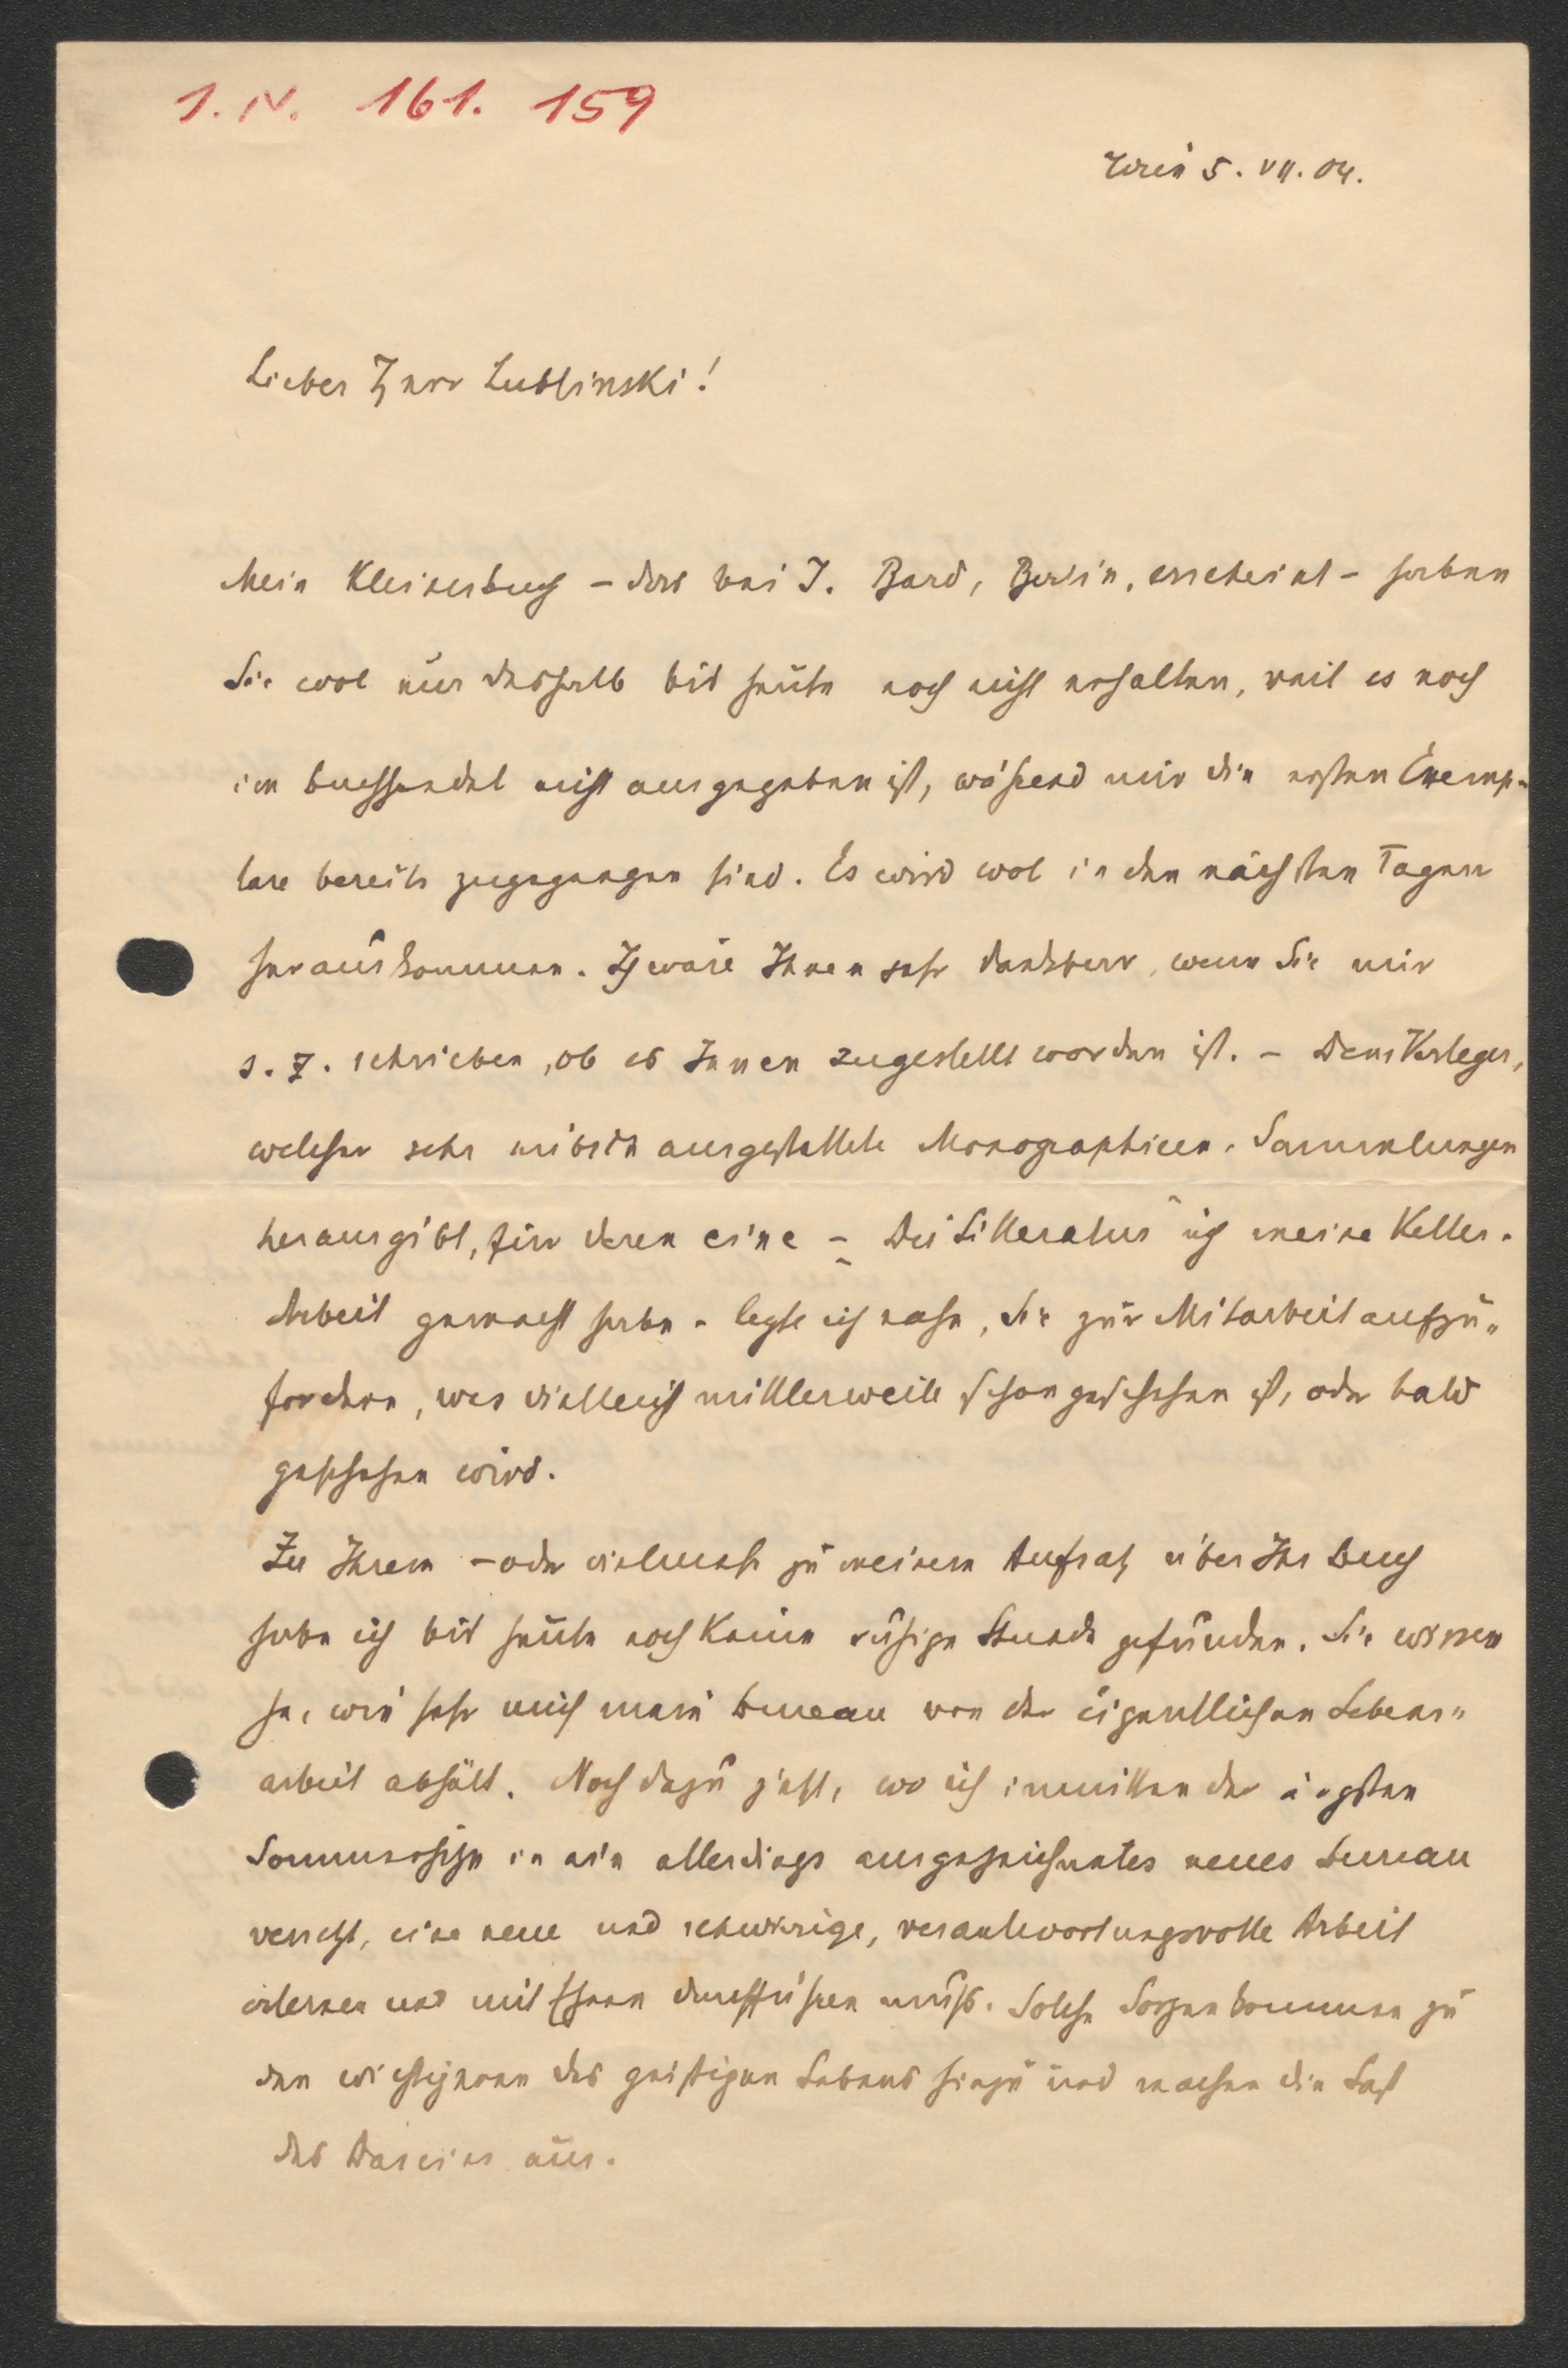 I. N. 161. 159
Wien 5. VII. 04.
Lieber Herr Lublinski!
Mein Kellerbuch – das bei J. Bard, Berlin, erscheint – haben
Sie wol nur deshalb bis heute noch nicht erhalten, weil es noch
im Buchhandel nicht ausgegeben ist, während mir die ersten Exemp-
lare bereits zugegangen sind. Es wird wol in den nächsten Tagen
herauskommen. Ich wäre Ihnen sehr dankbar, wenn Sie mir
s. Z. schrieben, ob es Ihnen zugestellt worden ist. – Dem Verleger,
welcher sehr hübsch ausgestattete Monographieen-Sammlungen
herausgibt, für deren eine – „Die Litteratur“ ich meine Keller-
Arbeit gemacht habe – legte ich nahe, Sie zur Mitarbeit aufzu-
fordern, was vielleicht mittlerweile schon geschehen ist, oder bald
geschehen wird.
Zu Ihrem – oder vielmehr zu meinem Aufsatz über Ihr Buch
habe ich bis heute noch keine ruhige Stunde gefunden. Sie wissen
ja, wie sehr mich mein Bureau von der eigentlichen Lebens-
arbeit abhält. Noch dazu jetzt, wo ich inmitten der ärgsten
Sommerhitze in ein allerdings ausgezeichnetes neues Bureau
versetzt, eine neue und schwierige, verantwortungsvolle Arbeit
erlernen und mit Ehren durchführen muß. Solche Sorgen kommen zu
den wichtigeren des geistigen Lebens hinzu und machen die Last
des Daseins aus.